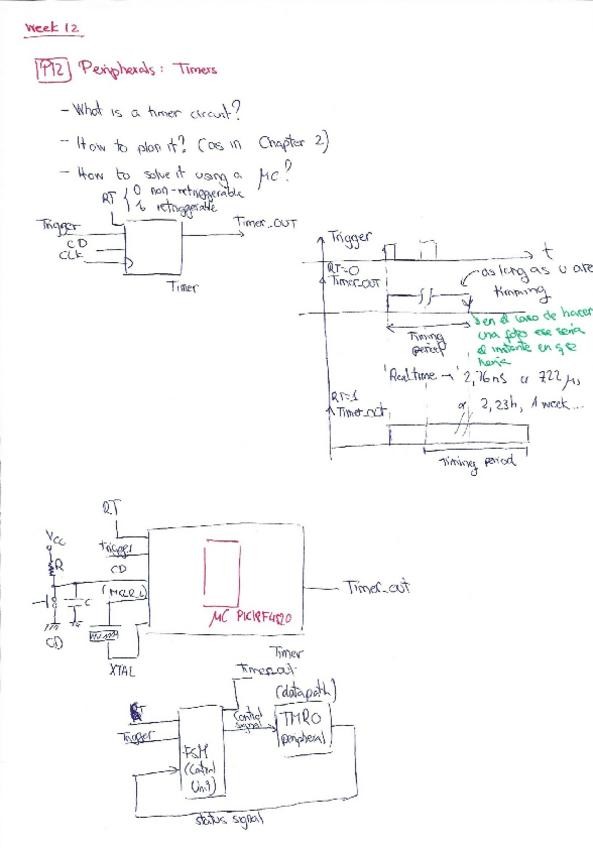 Week 12
P12 Peripherals: Timers
- What is a timer circuit?
- How to plan it? (as in Chapter 2)
- How to solve it using a μC?
RT { 0 non-retriggerable
1 retriggerable
Trigger
CD
CLK
Timer_OUT
Timer
Trigger
t
RT=0
Timer_OUT
as long as u are
timming
Timing
period
en el caso de hacer
una foto ese sería
el instante en q se
haría
'Real time → 2,76ns or 722 μs
or 2,23h, 1 week...
RT=1
Timer_out
Timing period
RT
Vcc
R
C
CD
Trigger
CD
(MCLR_L)
XTAL
μC PIC18F4520
Timer_out
Timer
Timer_out
(datapath)
RT
Trigger
FSM
(Control
Unit)
Control
signal
TMR0
peripheral
status signal